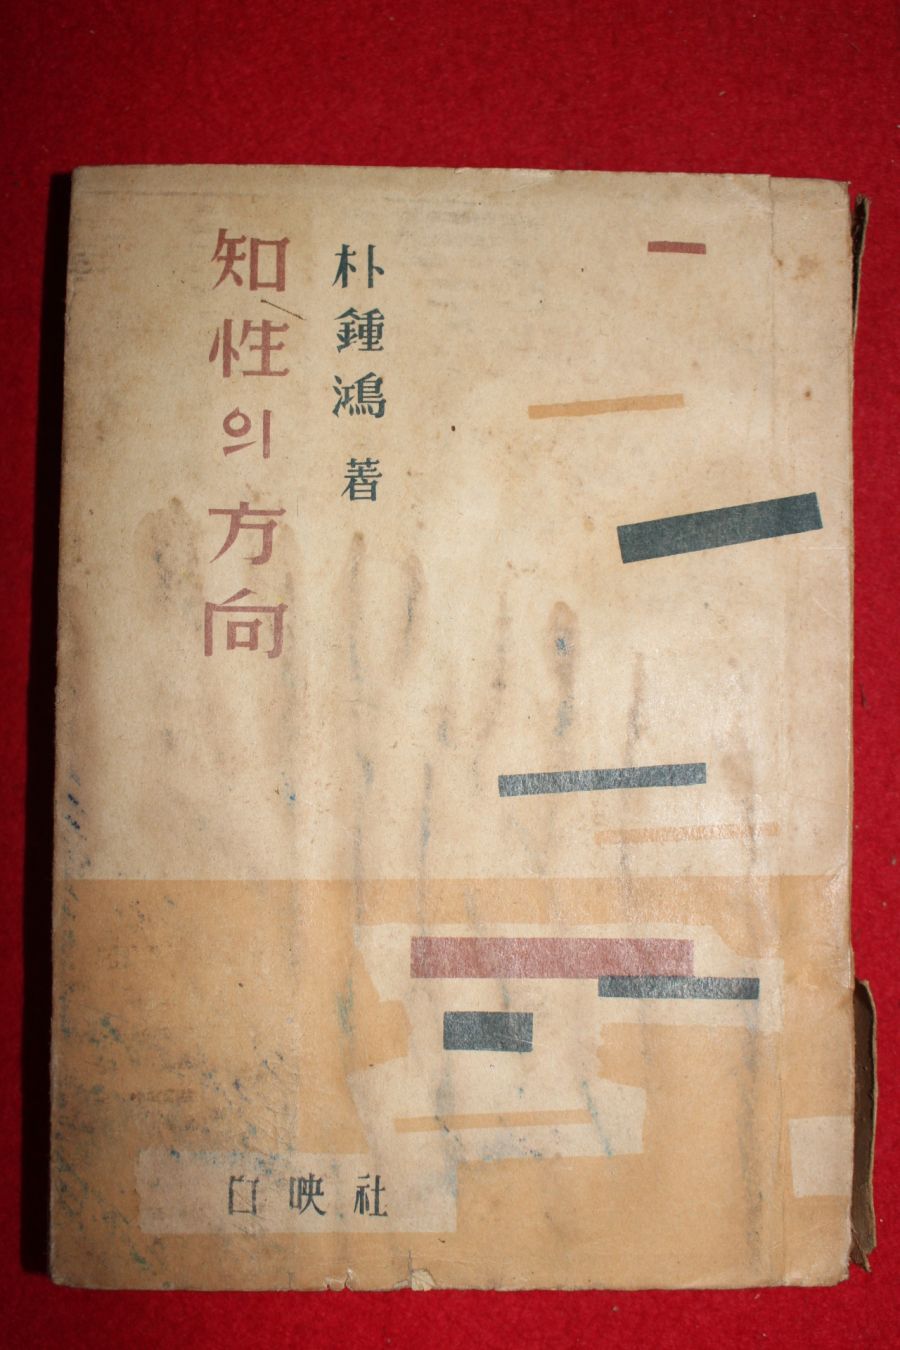 知性의 方向
朴鍾鴻 著
白映社